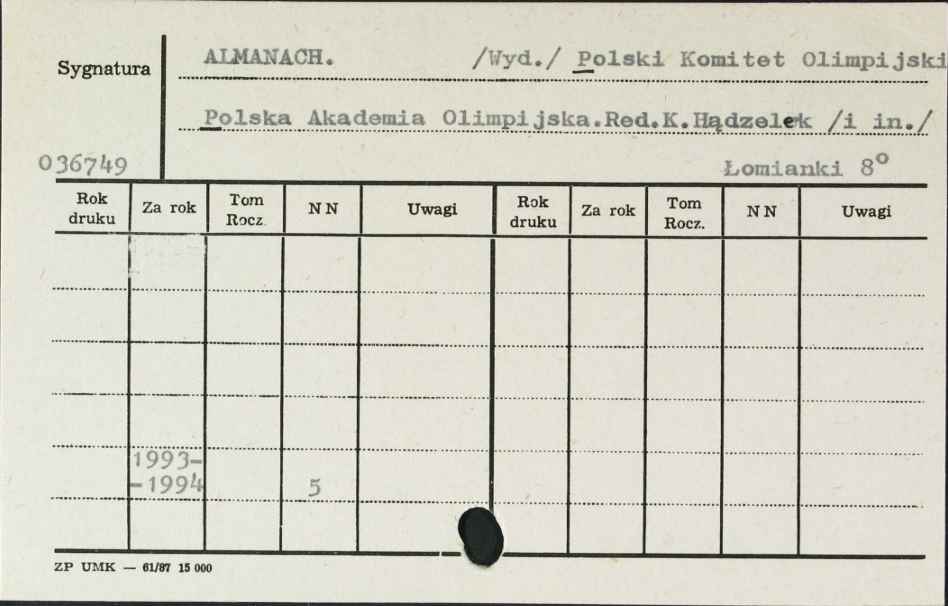 Sygnatura
ALMANACH. /Wyd./ Polski Komitet Olimpijski
Polska Akademia Olimpijska.Red.K.Hądzelek /i in./
036749 Łomianki 8°
Rok druku Za rok Tom Rocz. NN Uwagi Rok druku Za rok Tom Rocz. NN Uwagi
1993-
-1994 5
ZP UMK — 61/87 15 000